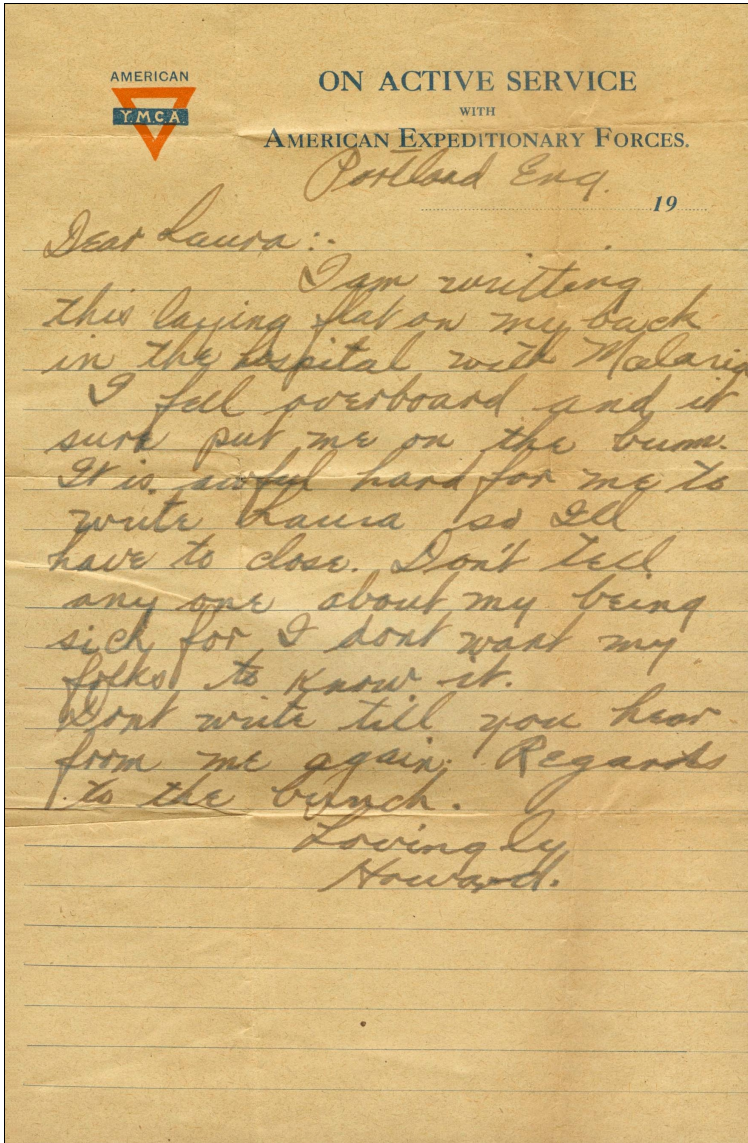 AMERICAN
Y.M.C.A.
ON ACTIVE SERVICE
WITH
AMERICAN EXPEDITIONARY FORCES.
Portland Eng.
19
Dear Laura:-
I am writting
this laying flat on my back
in the hospital with Malaria
I fell overboard and it
sure put me on the bum.
It is awful hard for me to
write Laura so Ill
have to close. Don't tell
any one about my being
sick for I dont want my
folks to know it.
Dont write till you hear
from me again. Regards
to the bunch.
Lovingly
Howard.